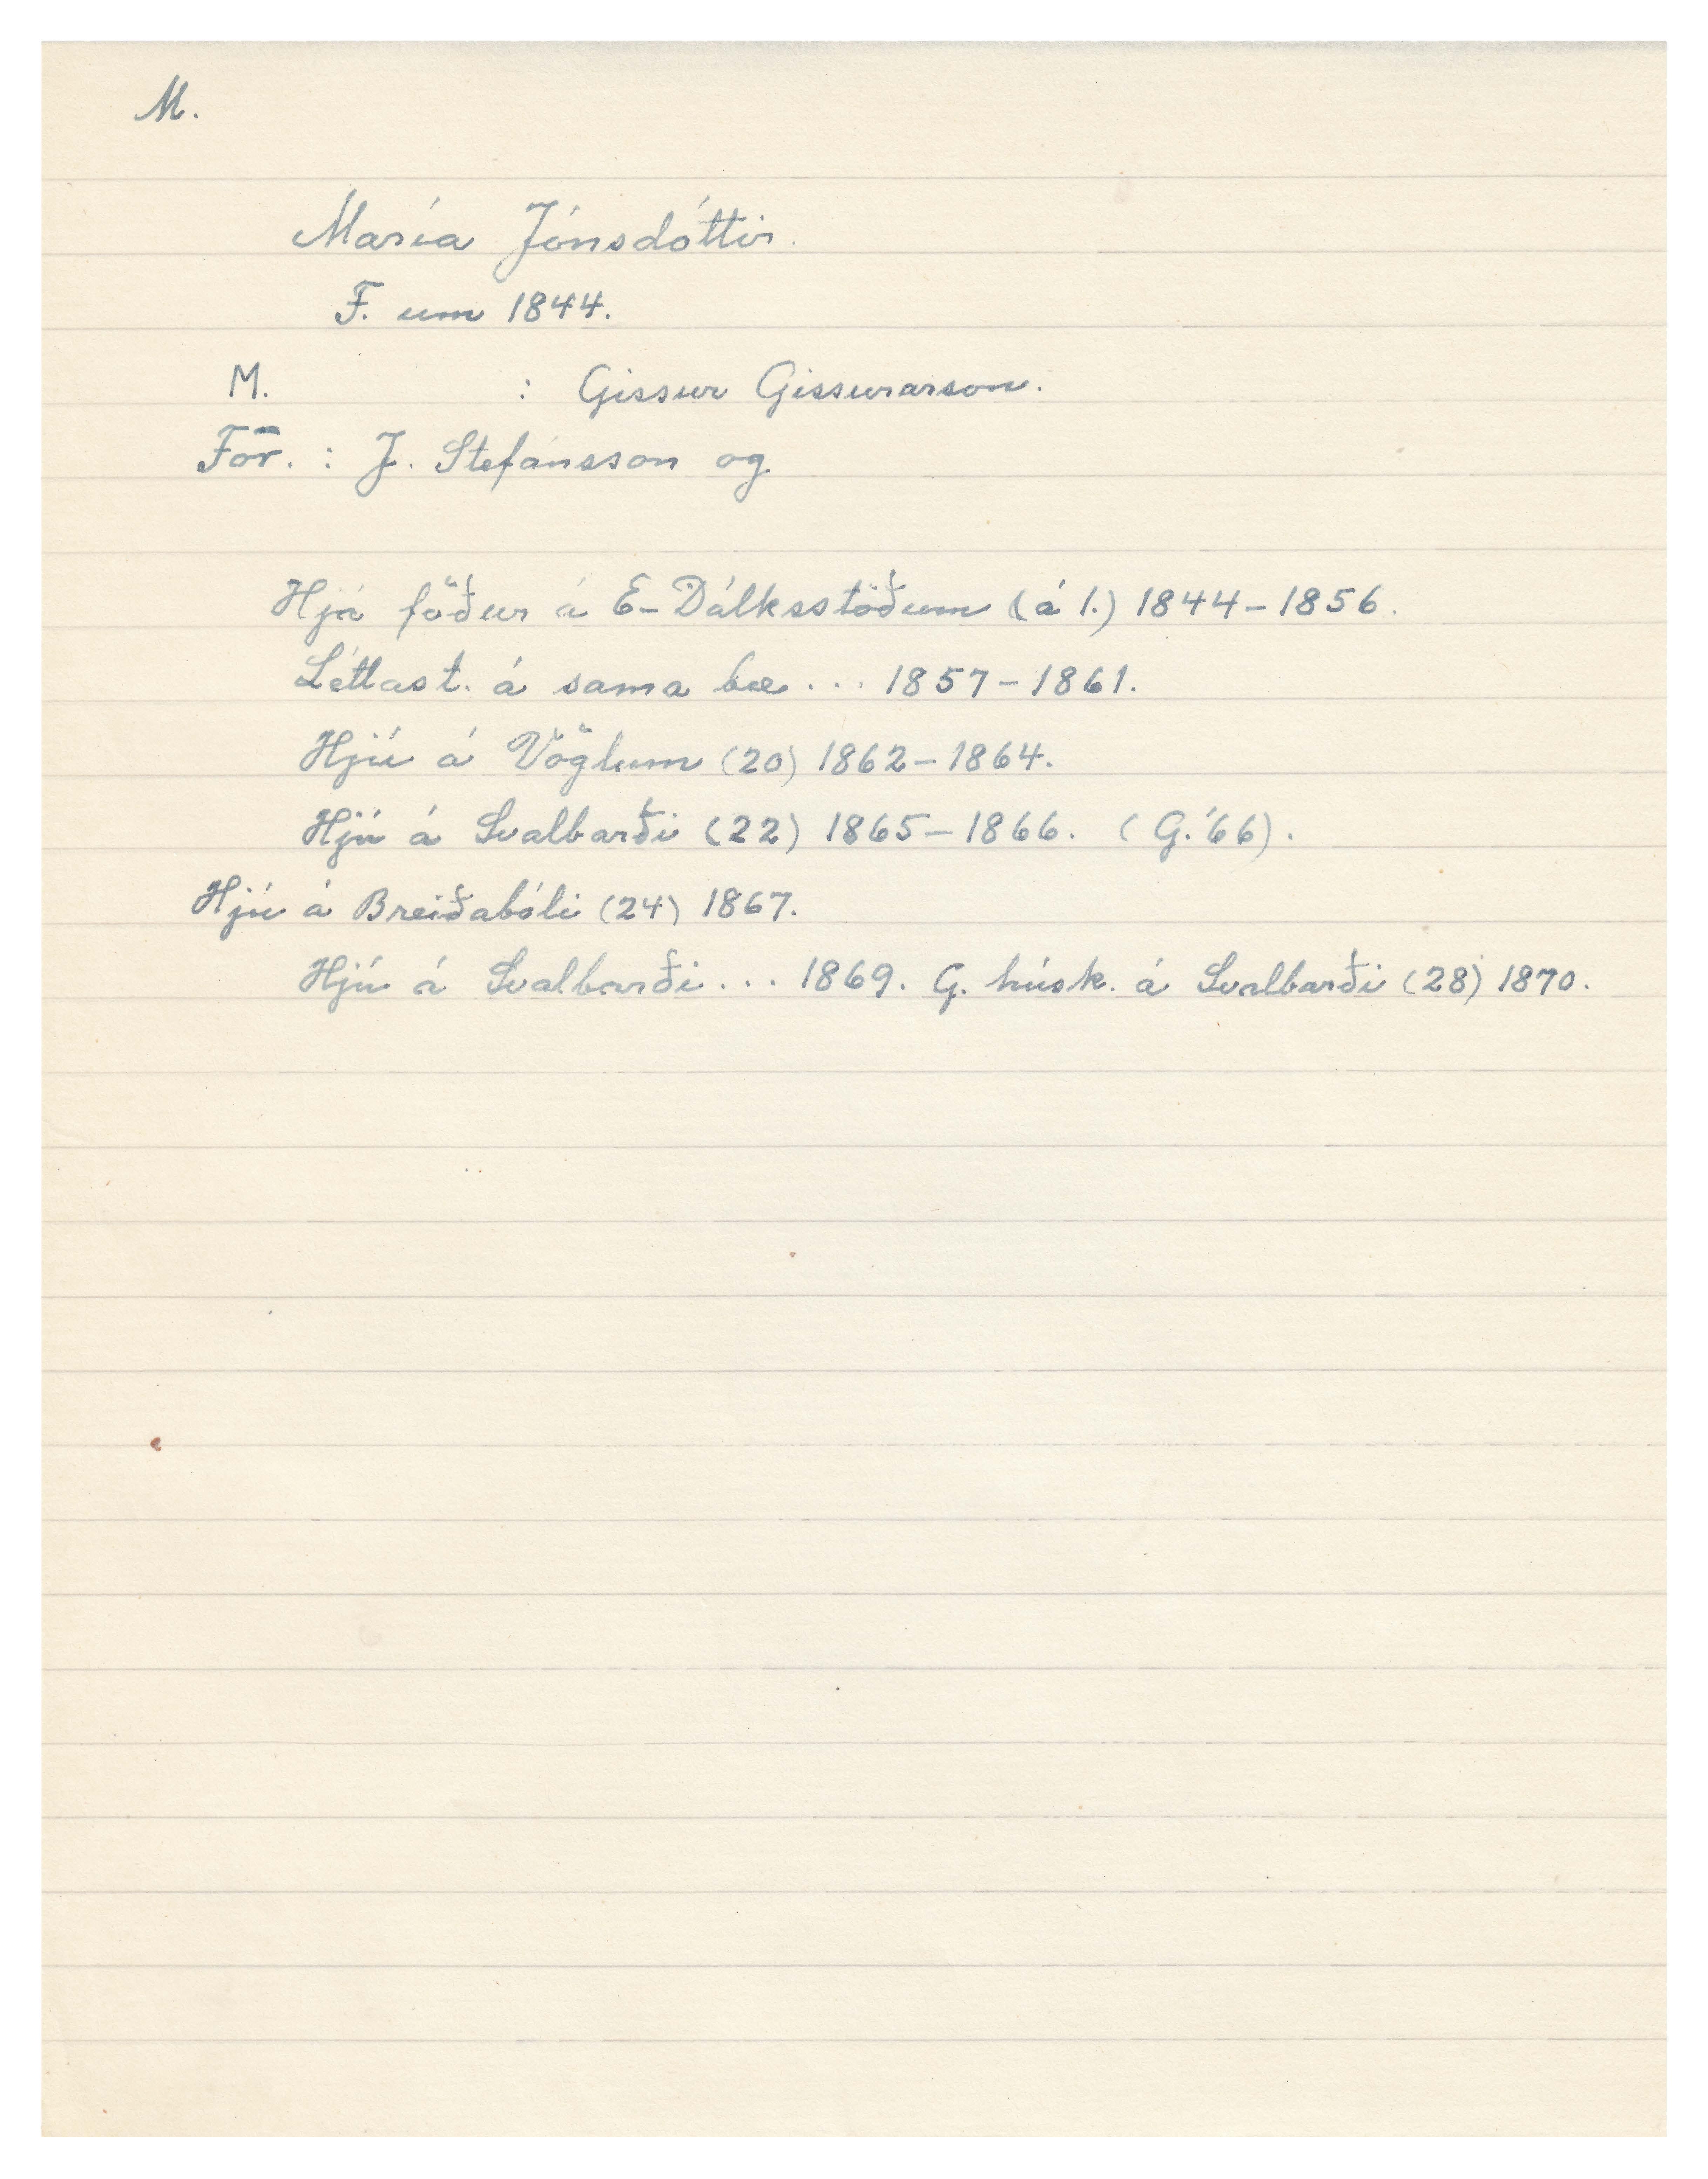 M.
María Jónsdóttir.
F. um 1844.
M. : Gissur Gissurarson.
For̄. : J. Stefánsson og
Hjá föður á E-Dálksstöðum (á 1.) 1844-1856.
Léttast. á sama bæ... 1857-1861.
Hjú á Vöglum (20) 1862-1864.
Hjú á Svalbarði (22) 1865-1866. (G.'66).
Hjú á Breiðabóli (24) 1867.
Hjú á Svalbarði... 1869. G. húsk. á Svalbarði (28) 1870.